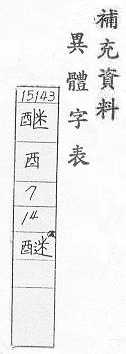 補充資料
異體字表
15143
酼
酉
7
14
醚